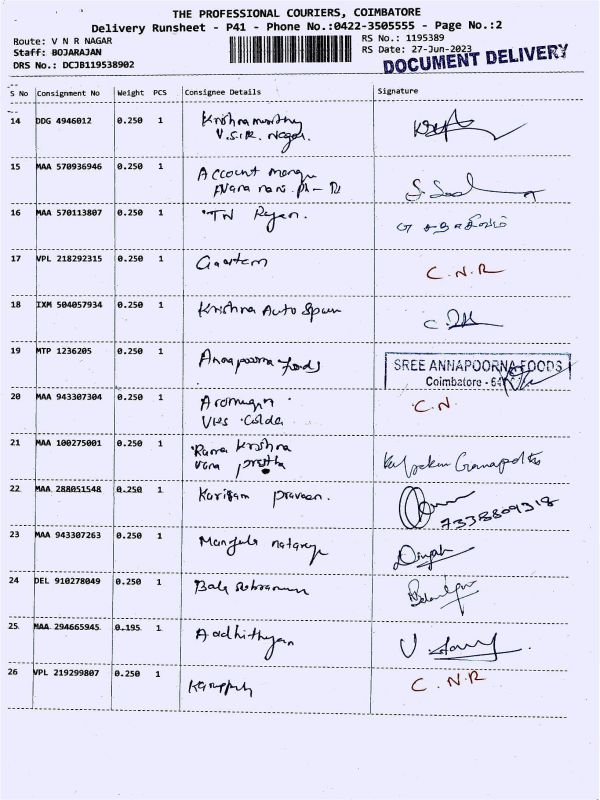 THE PROFESSIONAL COURIERS, COIMBATORE
Delivery Runsheet - P41 - Phone No.:0422-3505555 - Page No.:2
Route: V N R NAGAR
RS No.: 1195389
Staff: BOJARAJAN
RS Date: 27-Jun-2023
DRS No.: DCJB119538902
DOCUMENT DELIVERY
S No Consignment No Weight PCS Consignee Details Signature
14 DDG 4946012 0.250 1 Krishnamurthy
V.S.I.R. Nagar.
15 MAA 570936946 0.250 1 Account
16 MAA 570113807 0.250 1 TN Rajan.
17 VPL 218292315 0.250 1 Gowtam C.N.R
18 IXM 504057934 0.250 1 Krishna Auto Spun
19 MTP 1236205 0.250 1 Annapoorna foods SREE ANNAPOORNA FOODS
Coimbatore - 64
20 MAA 943307304 0.250 1 C.N
21 MAA 100275001 0.250 1 Rama Krishna
22 MAA 288051548 0.250 1 praveen.
7338809318
23 MAA 943307263 0.250 1 Manjula
24 DEL 910278049 0.250 1 Bala
25 MAA 294665945 0.195 1 Aadhithyan
26 VPL 219299807 0.250 1 C.N.R